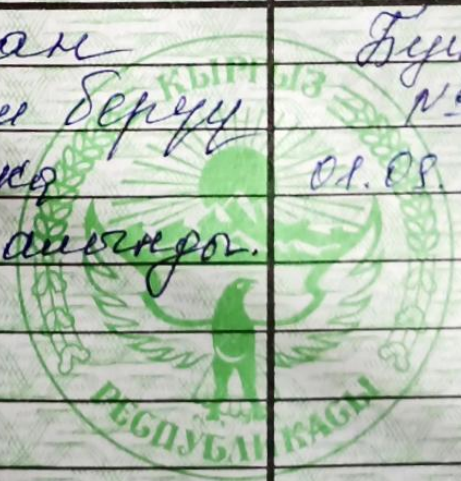 ан Буй
и берүү №
ка 01.09.
алынды.
КЫРГЫЗ
РЕСПУБЛИКАСЫ